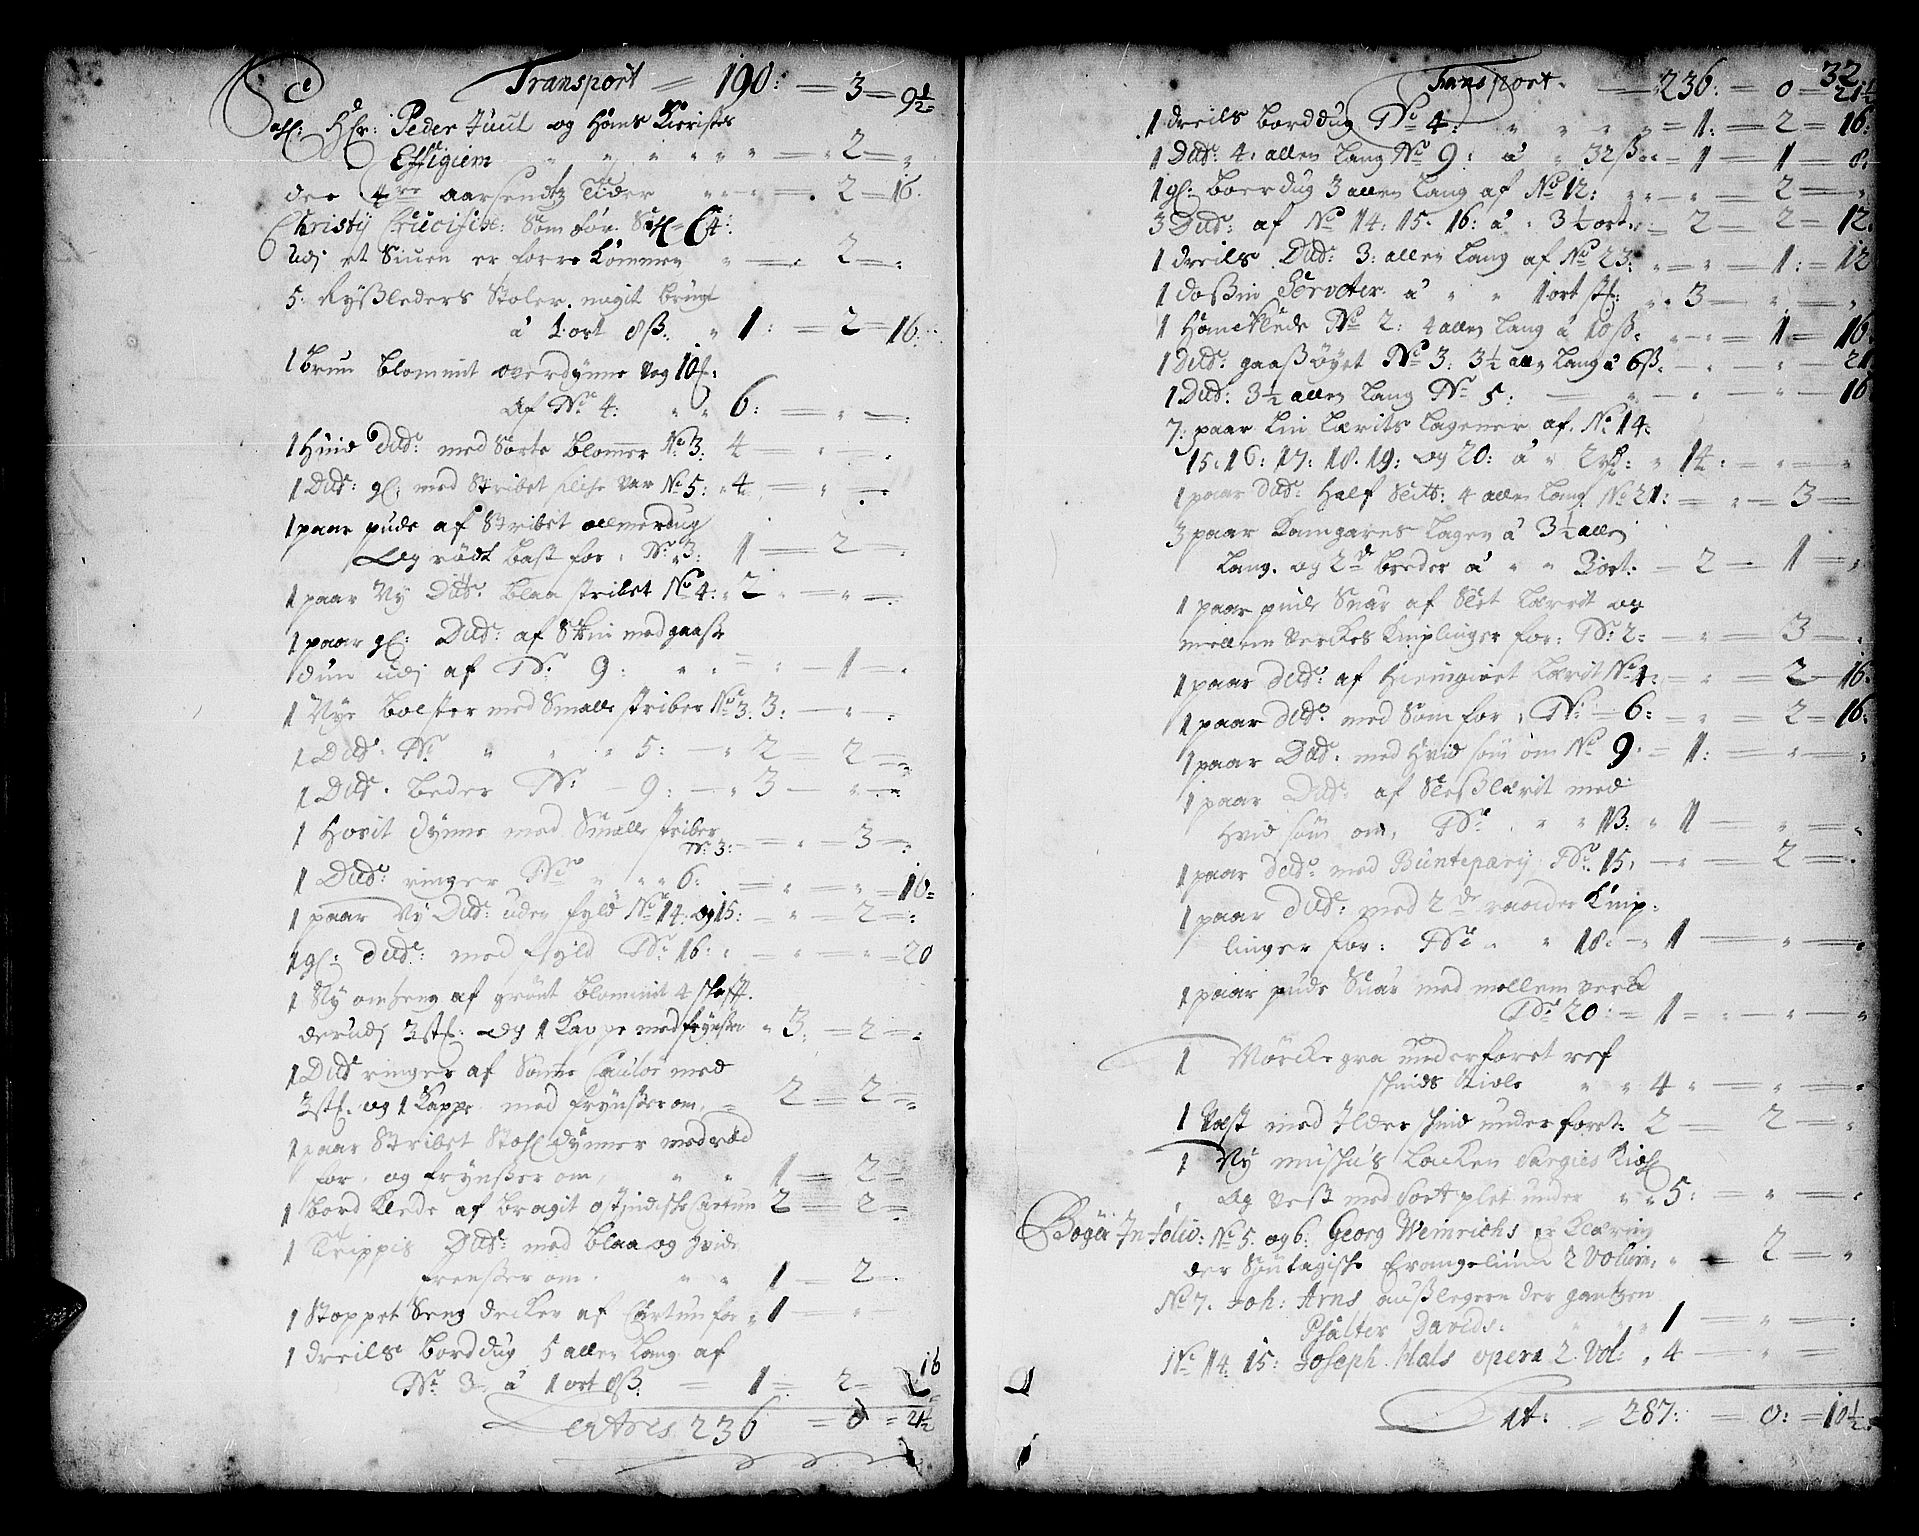 Transport = 190: = 3 = 9½
Sahl: Hr: Peder Juul og hans Kieristes
Effigiem " " " " " " = = 2 = "
der 4re aarsendtz Tider " " " = 2 = 16:
Christij Crucifix: Som för
udj et Siuen er forre Kommen " = 2 = "
5: Rysleders Stoler, nogit brugt
á 1 ort 8ß. " 1: = 2 = 16:
1 Brun blommit overdynne
Af No 4: " " 6: = " = "
1 Huid Dito med Sorte blomer No 3: 4 = " = "
1 Dito gl: med Stribet No 5: 4 = " = "
1 paar pude af Stribet olmerdug
Og rödt bast for: No 3: 1 = 2 = "
1 paar Ny Dito blaa stribet No 4: 2 = " = "
1 paar gl: Dito af Skin med gaasse
dun udj af No 9: " " = " = 1 = "
1 Nye bolster med Smalle striber No 3. 3: = " = "
1 Dito No " " " 5: = 2 = 2 = "
1 Dito beder No 9: = 3 = " = "
1 Hovit dynne med Smalle striber
No 3: = " = 3 = "
1 Dito ringer No " " " 6: = " = " = 10 =
1 paar Ny Dito uden fyld No 14: og 15: = " = 2 = "
1 gl: Dito med fyld No 16: " = " = " = 20
1 Ny omheng af grönt blommit
derudj 3 st: Og 1 Kappe med frynsser " 3: = 2 = "
1 Dito ringer af Same Caulör med
3 st. og 1 Kappe med frynsser om, = 2 = 2 = "
1 paar Stribet Stoel dynner med röd
for, og frynsser om, " " 1 = 2 = "
1 bord Klede af bragit ostindische Cartun 2 = 2 = "
1 Dito med blaa og hvide
frensser om. " " 1 = 2 = "
1 Stoppet Seng decken af Cartun for " 1 = " = "
1 dreils borddug 5 allen lang af
No 3 á 1 ort 8ß. = 1 = 2 = 16
Lateris 236 = 0 = 21½
32.
Transport. = 236: = 0 = 21½
1 dreils borddug No 4: " " " " = 1: = 2 = 16:
1 Dito 4: allen lang No 9: á " 32ß = 1 = 1 = 8:
1 gl: boerdug 3 allen lang af No 12: " " = " = 2 = "
3 Dito af No 14: 15. 16: á " 3½ ort = 2 = 2 = 12.
1 dreils Dito 3: allen lang af No 23: " = " = 1: = 12
1 dossin Serveter á " " 1 ort st: " 3 = " = "
1 Haneklede No 2: 4 allen lang á 10ß. " = 1 = 16:
1 Dito gaassöyet No 3. 3½ allen lang á 6ß. = " = " = 21
1 Dito 3½ allen lang No 5: = " = " = 16
7: paar lin lærits lagener af. No 14:
15: 16: 17: 18. 19: og 20: á " 2 rd: " 14: = " = "
1 paar Dito half Slitt: 4 allen lang No 21: = " = 3 =
3 paar Kamgarns lagen á 3½ allen
lang. og 2de breder á " " 3 ort: = 2 = 1 = "
1 paar pude Vaar af Slet lærit og
mellem verckes Kniplinger for: No 2: = " = 3 = "
1 paar Dito af Hiemgiort lærit No 4: = " = 2 = 16:
1 paar Dito med Söm for, No 6: = " = 2 = 16:
1 paar Dito med Hvid söm om No 9: = 1: = " = "
1 paar Dito af Slesslærit med
Hvid söm om, No " " 13: " 1 = " = "
1 paar Dito med Buntepary No 15, = " = 2 = "
1 paar Dito med 2de raader Knip:
linger for: No " " 18: = 1 = " = "
1 paar pude Vaar med mellem verck
No 20: = 1 = " = " = "
1 Mörcke gra underforet ref
skinds Stivle " " 4 " = " = "
1 Vest med Ilder skind underforet: 2 = 2 = "
1 Ny muskus lacken Sargies Kiol
Og Vest med Sort plet under " " 5: = " = "
Bögér In folio: No 5. og 6: Georg Weinrichs erklæring
der Sontagische Evangelium 2 Volum, " = 2 = "
No 7. Joh: Arns ausslegern der gantzen
Psalter Davids: " " " 1 = " = "
No 14. 15: Joseph Hals opera 2. Vol: " 4 = " = "
Lat: = 287: = 0: = 10½